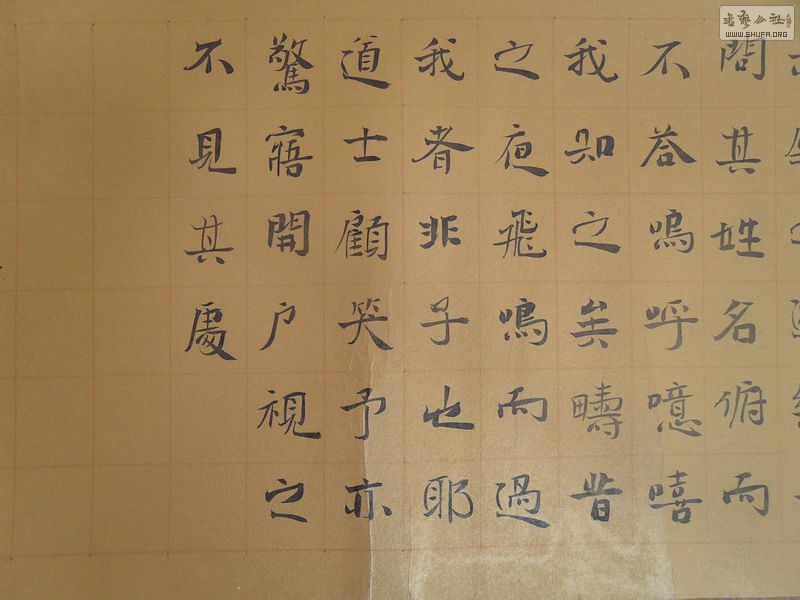 問其姓名俯而
不荅嗚呼噫嘻
我知之矣疇昔
之夜飛鳴而過
我者非子也耶
道士顧笑予亦
驚寤開户視之
不見其處
WWW.SHUFA.ORG